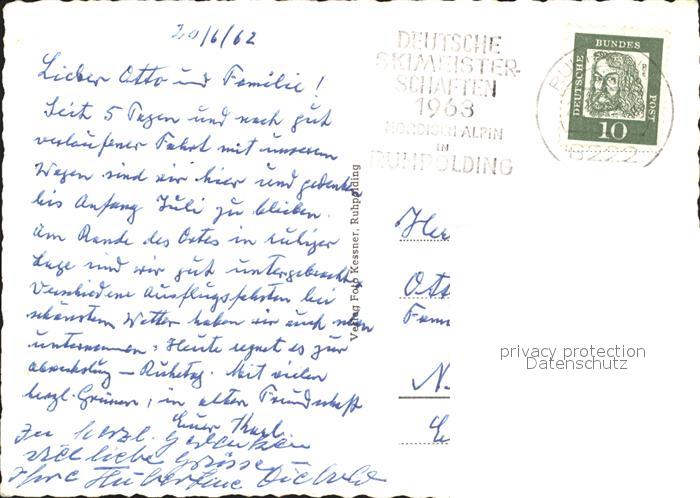 20/6/62
Lieber Otto und Familie!
Seit 5 Tagen und nach gut
verlaufener Fahrt mit unserem
Wagen sind wir hier und gedenken
bis Anfang Juli zu bleiben.
Am Rande des Ortes in ruhiger
Lage sind wir gut untergebracht.
Verschiedene Ausflugsfahrten bei
schönstem Wetter haben wir auch schon
unternommen. Heute regnet es zur
Abwechslung – Ruhetag. Mit vielen
herzl. Grüssen, in alter Freundschaft
Euer
Zu herzl. Gedenken
viel liebe Grüsse
Ihre Hubertine
Verlag Foto Kessner, Ruhpolding
DEUTSCHE
SKIMEISTER-
SCHAFTEN
1963
NORDISCH-ALPIN
IN
RUHPOLDING
DEUTSCHE BUNDES POST
10
8222
Her
Otto
Fam
N.
privacy protection
Datenschutz